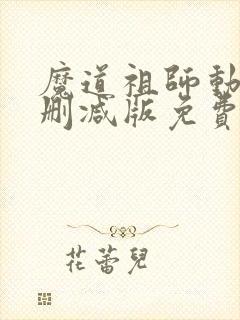 魔道祖師動
刪減版免費
花蕾兒